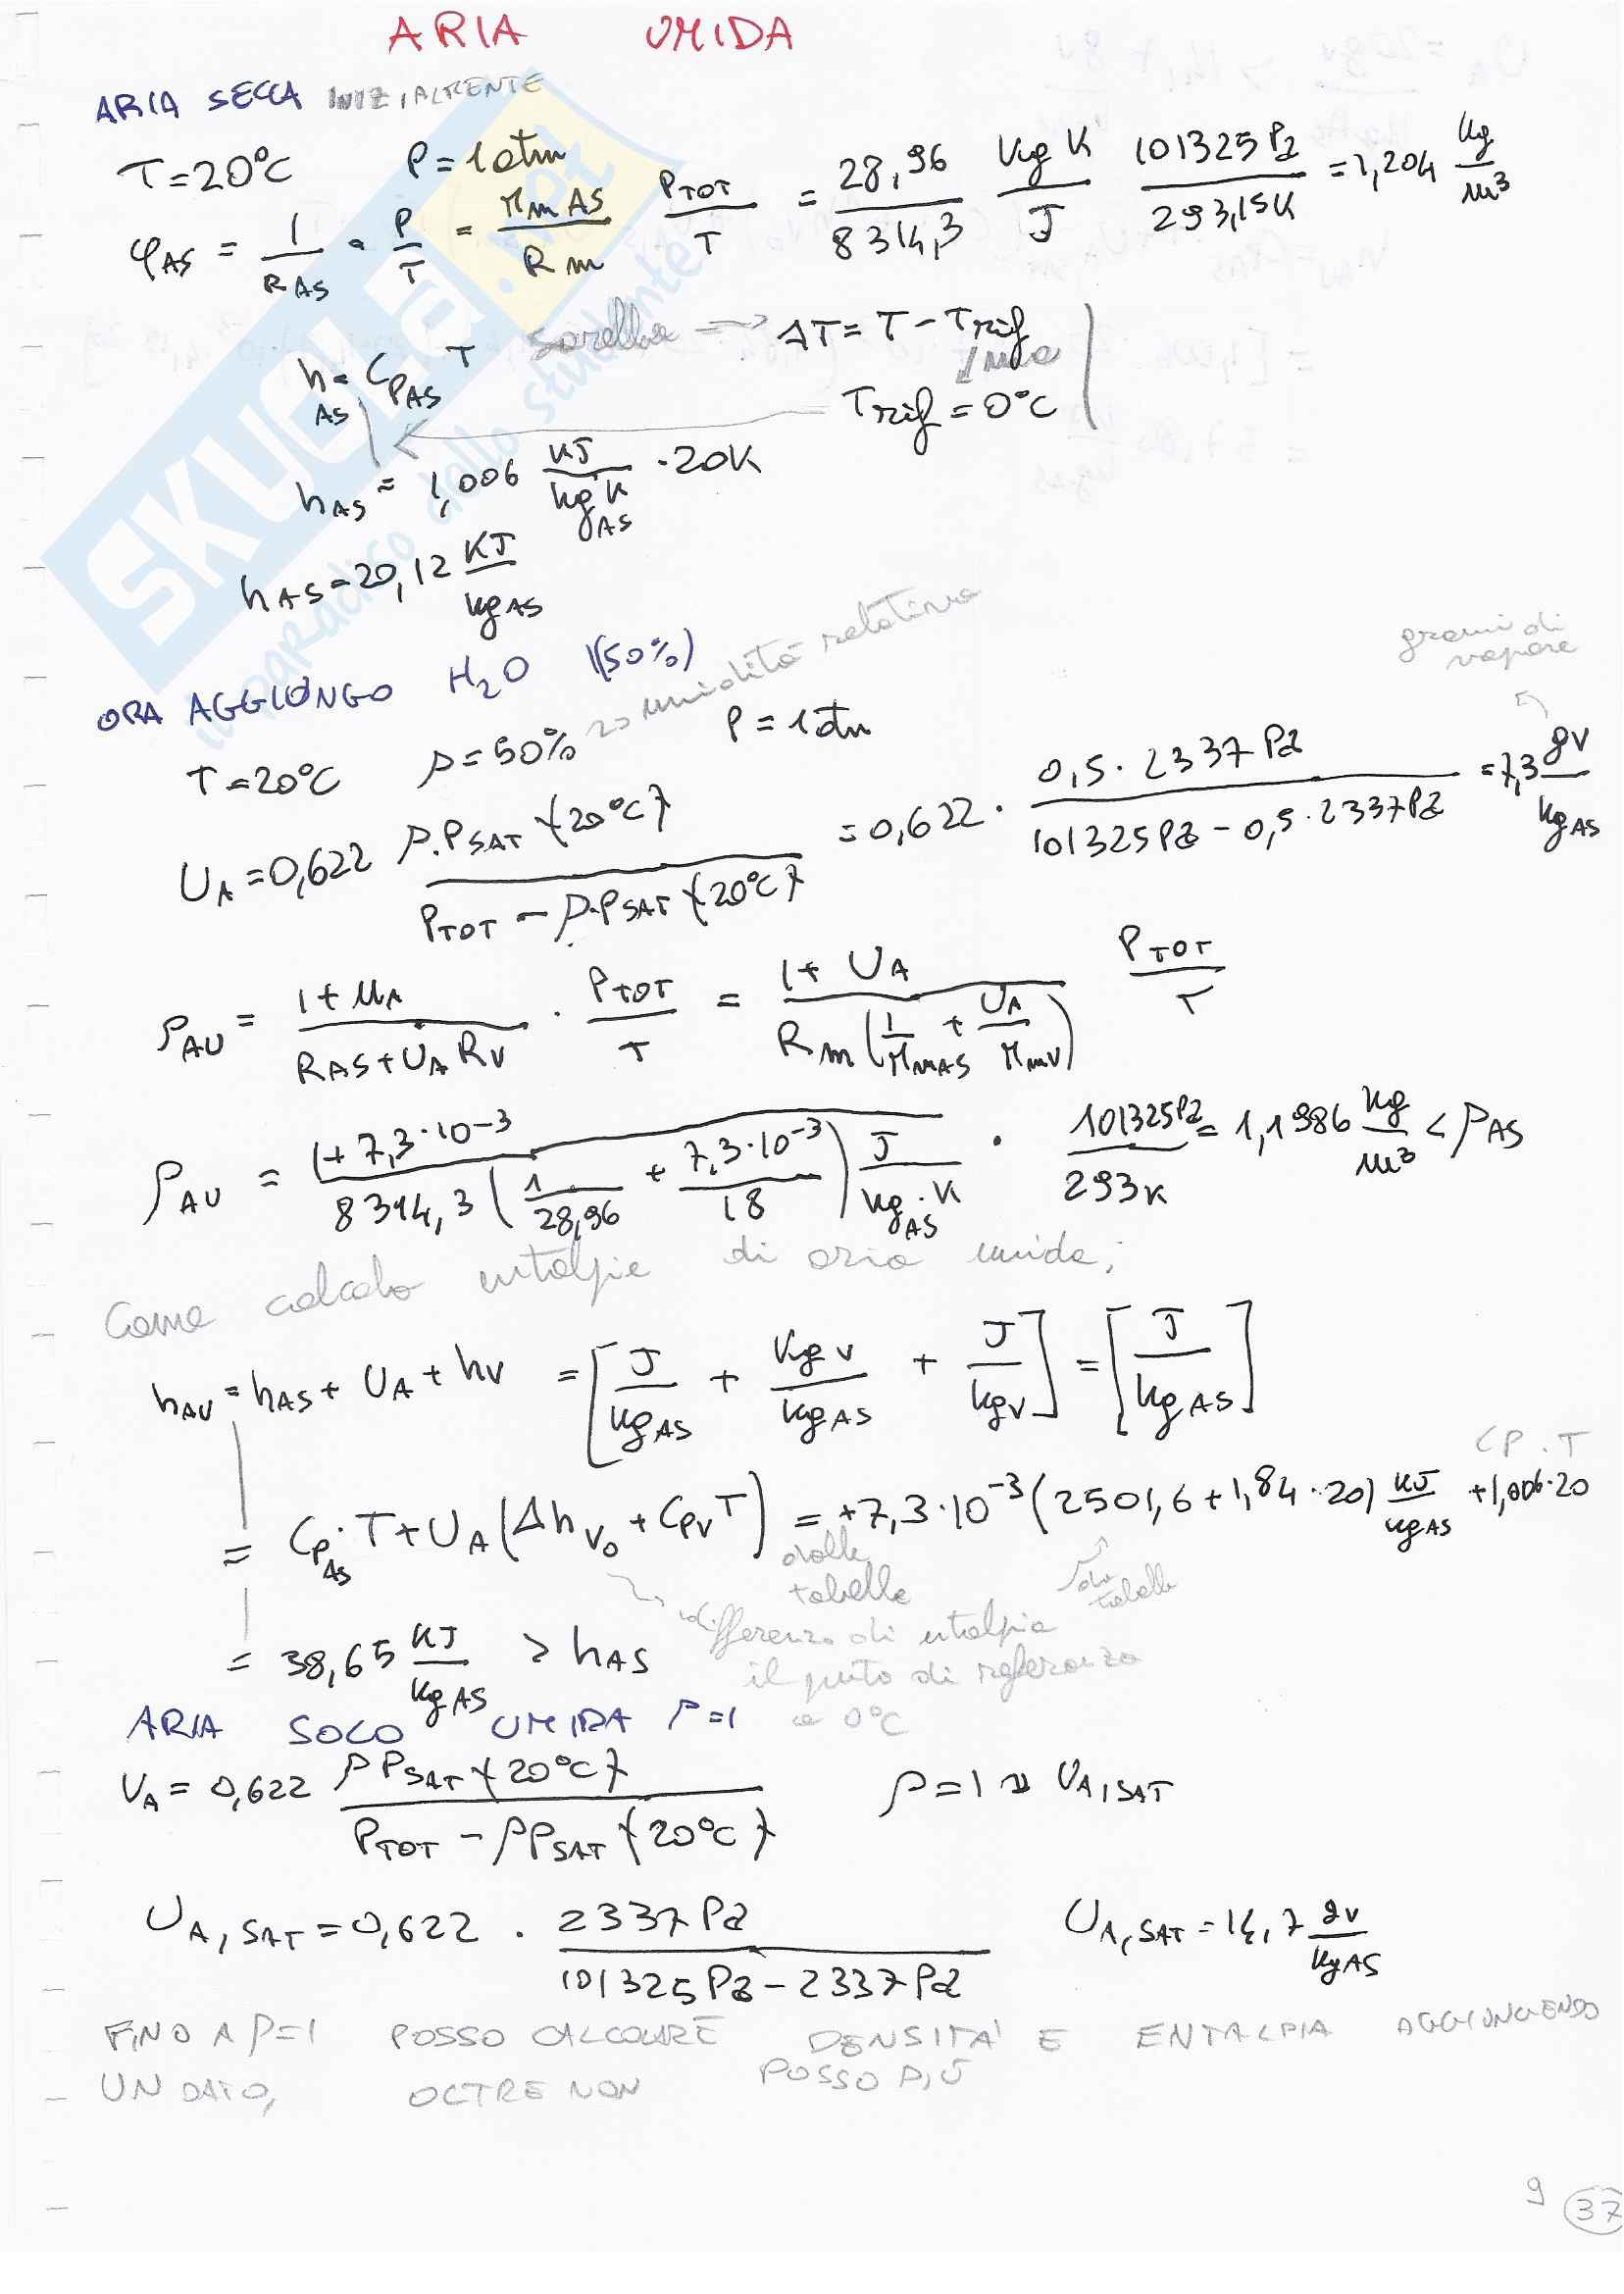 ARIA UMIDA
ARIA SECCA INIZIALMENTE
T=20°C P=1atm
φAS = 1/RAS · P/T = MmAS/Rm PTOT/T = 28,96/8314,3 Kg K/J 101325Pa/293,15K = 1,204 kg/m³
hAS = CPAS T sarebbe => ΔT = T - Trif
Trif = 0°C
hAS = 1,006 KJ/kgAS K · 20K
hAS = 20,12 KJ/kgAS
ORA AGGIUNGO H2O (50%)
grammi di vapore
T=20°C ρ=50% => umidità relativa P=1atm
UA = 0,622 ρ·PSAT(20°C)/PTOT - ρ·PSAT(20°C) = 0,622 · 0,5·2337Pa/101325Pa - 0,5·2337Pa = 7,3 gv/kgAS
ρAU = 1+UA/RAS+UARV · PTOT/T = 1+UA/Rm(1/MmAS + UA/Mmv) PTOT/T
ρAU = 1+7,3·10⁻³/8314,3(1/28,96 + 7,3·10⁻³/18) J/kgAS·K · 101325Pa/293K = 1,1986 kg/m³ < ρAS
Come calcolo entalpie di aria umida;
hAU = hAS + UA + hV = [J/kgAS + Kgv/kgAS + J/kgv] = [J/kgAS]
CP·T
= CPAS·T+UA(ΔhV0+CPVT) = +7,3·10⁻³(2501,6+1,84·20) KJ/kgAS +1,006·20
dalle tabelle
da tabelle
differenza di entalpia
il punto di referenza
a 0°C
= 38,65 KJ/kgAS > hAS
ARIA SOLO UMIDA ρ=1
UA = 0,622 ρPSAT(20°C)/PTOT - ρPSAT(20°C) ρ=1 => UA,SAT
UA,SAT = 0,622 · 2337Pa/101325Pa - 2337Pa UA,SAT = 14,7 gv/kgAS
FINO A ρ=1 POSSO CALCOLARE DENSITA' E ENTALPIA AGGIUNGENDO
UN DATO, OLTRE NON POSSO PIÙ
9 37
SKUOLA.net
il paradiso dello studente